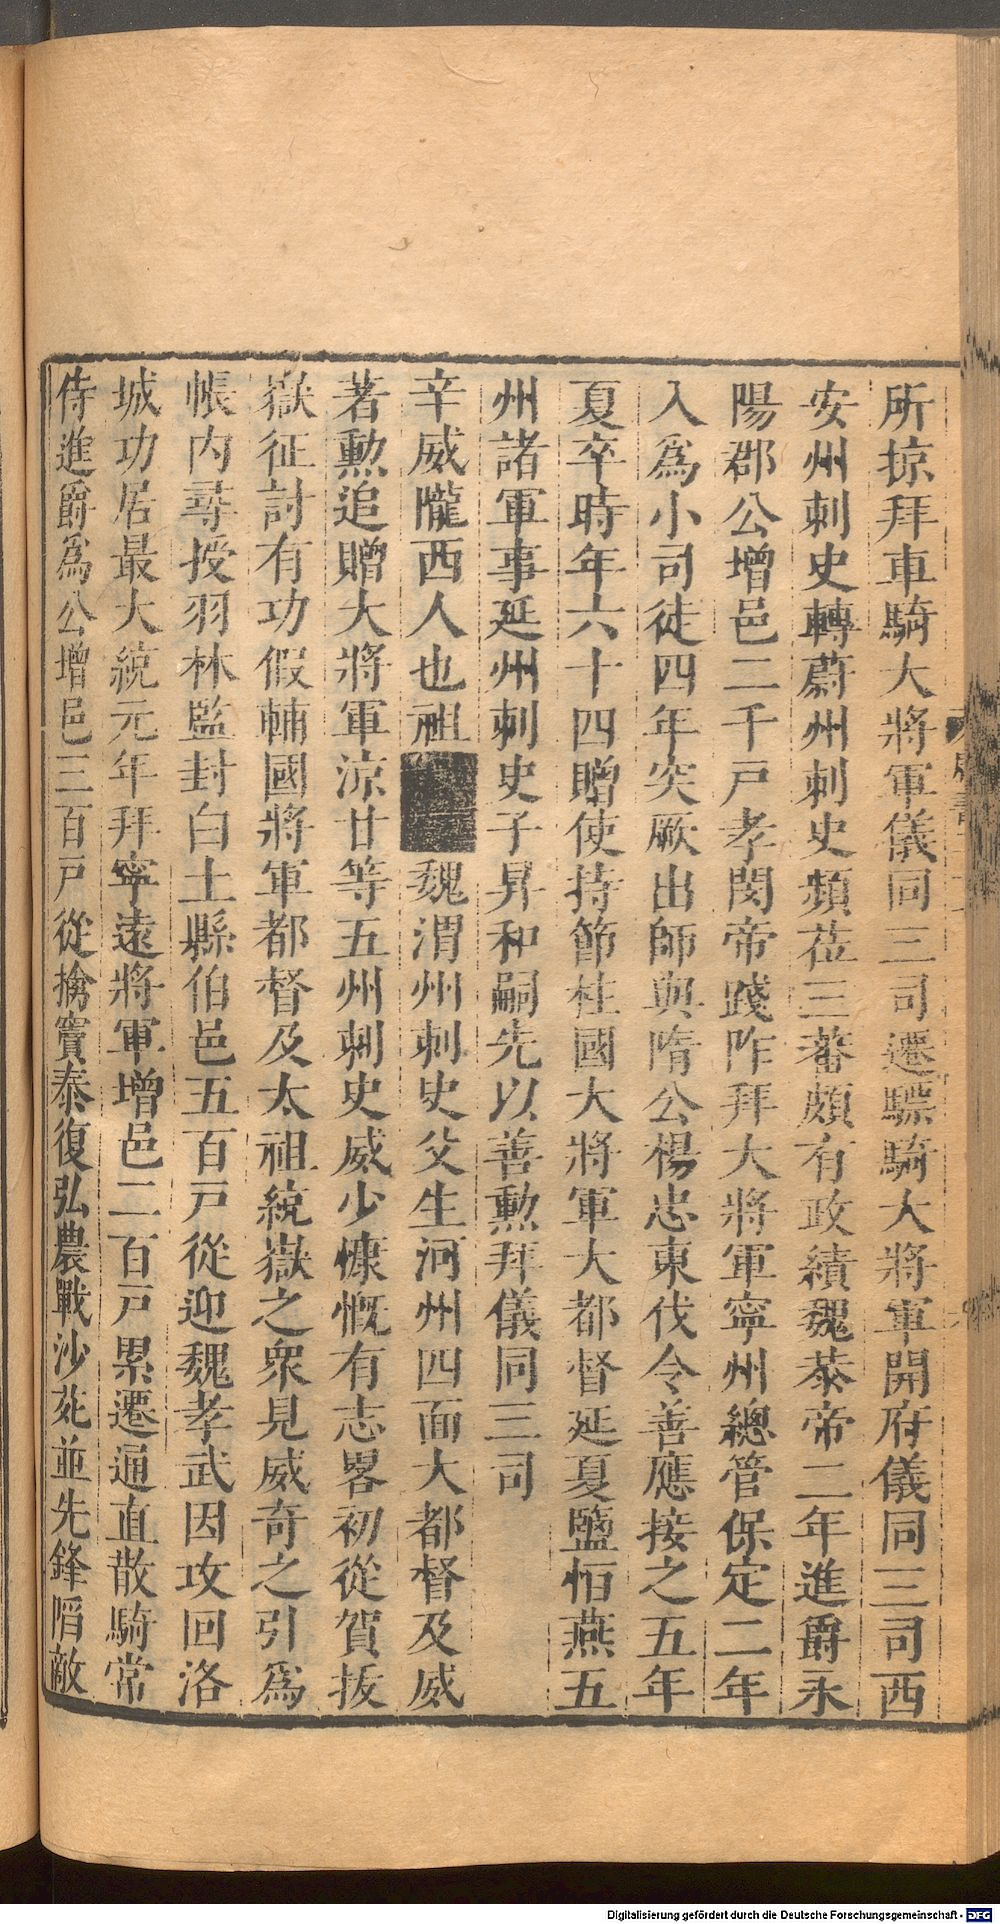 所掠拜車騎大將軍儀同三司遷驃騎大將軍開府儀同三司西
安州刺史轉蔚州刺史頻莅三蕃頗有政績魏恭帝二年進爵永
陽郡公增邑二千戸孝閔帝踐阼拜大將軍寧州總管保定二年
入爲小司徒四年突厥出師與隋公楊忠東伐令善應接之五年
夏卒時年六十四贈使持節柱國大將軍大都督延夏鹽恒燕五
州諸軍事延州刺史子昇和嗣先以善勲拜儀同三司
辛威隴西人也祖 魏渭州刺史父生河州四面大都督及威
著勲追贈大將軍涼甘等五州刺史威少慷慨有志畧初從賀拔
嶽征討有功假輔國將軍都督及太祖統嶽之衆見威奇之引爲
帳內尋授羽林監封白土縣伯邑五百戸從迎魏孝武因攻回洛
城功居最大統元年拜寧遠將軍增邑二百戸累遷通直散騎常
侍進爵爲公增邑三百戸從擒竇泰復弘農戰沙苑並先鋒陷敵
Digitalisierung gefördert durch die Deutsche Forschungsgemeinschaft - DFG